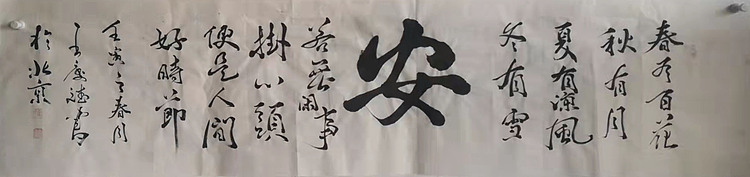 春有百花
秋有月
夏有凉風
冬有雪
安
若無閒事
掛心頭
便是人間
好時節
壬寅之春月
於北京